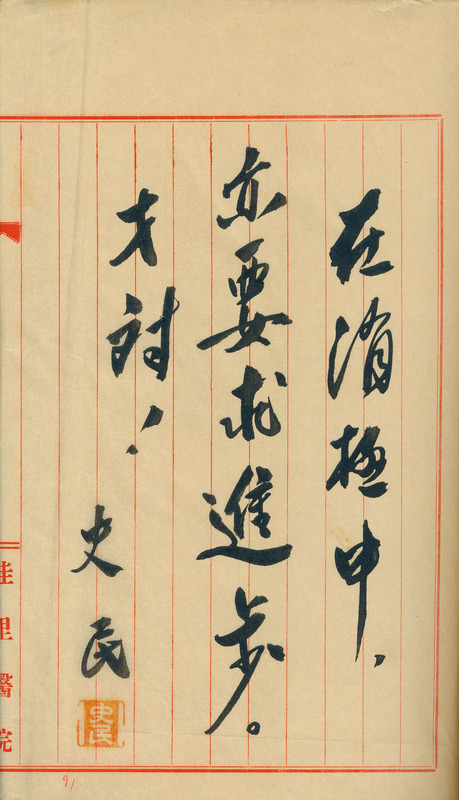 在消極中、
亦要求進步。
才對!
史民
史民
佳里醫院
91